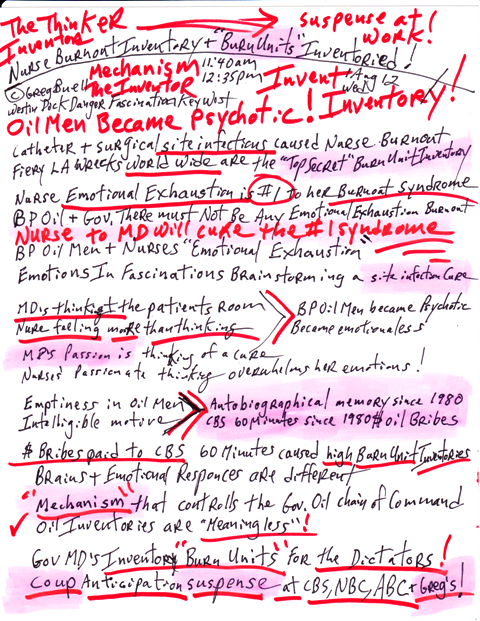 The Thinker suspense at
Inventor work!
Nurse Burnout Inventory + "Burn Units" Inventoried!
Mechanism 11:40am Invent + Aug 1 62
©Greg Buell The Inventor 12:35pm Wed
Westin Dick Danger Fascination Key West Inventory!
Oil Men Became Psychotic!
Catheter + Surgical site infections caused Narse Burnout
Fiery LA Wrecks world wide are the "Top Secret" Burn Unit Inventory
Nurse Emotional Exhaustion is #1 to her Burnout Syndrome
BP Oil + Gov. There must Not Be Any Emotional Exhaustion Burnout
Nurse to MD will cure the #1 syndrome
BP Oil Men + Nurses "Emotional Exhaustion"
Emotions In Fascinations Brainstorming a site infection Cure
MD is thinking the patients Room BP Oil Men became Psychotic
Nure feeling more than thinking Became emotionaless
MD's Passion is thinking of a cure
Nurses' Passionate thinking overwhelms her emotions!
Emptiness in Oil Men Autobiographical memory since 1980
Intelligible motive CBS 60 Minutes since 1980 $ Oil Bribes
# Bribes paid to CBS 60 Minutes caused high Burn Unit Inventories
Brains + Emotional Responces are different
"Mechanism" that controlls the Gov. Oil chain of Command
Oil Inventories are "Meaningless"!
Gov MD's Inventory "Burn Units" for the Dictators!
Coup Anticipation suspense at CBS, NBC, ABC + Greg's!